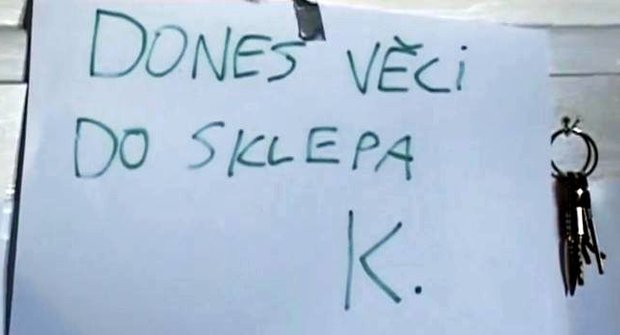 DONES VĚCI
DO SKLEPA
K.